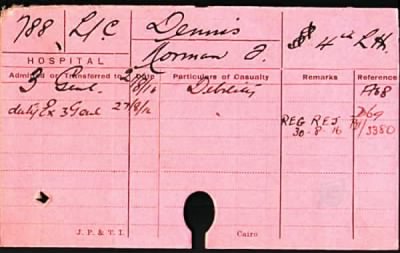 788, L/C Dennis
Norman J. 4th L.H.
HOSPITAL
Admitted or Transferred to Date Particulars of Casualty Remarks Reference
3 Genl. 2/8/16 Debility A68
duty Ex 3 Genl 27/8/16 D69
REG REJ
30-8-16 /3380
J. P. & T. I. Cairo